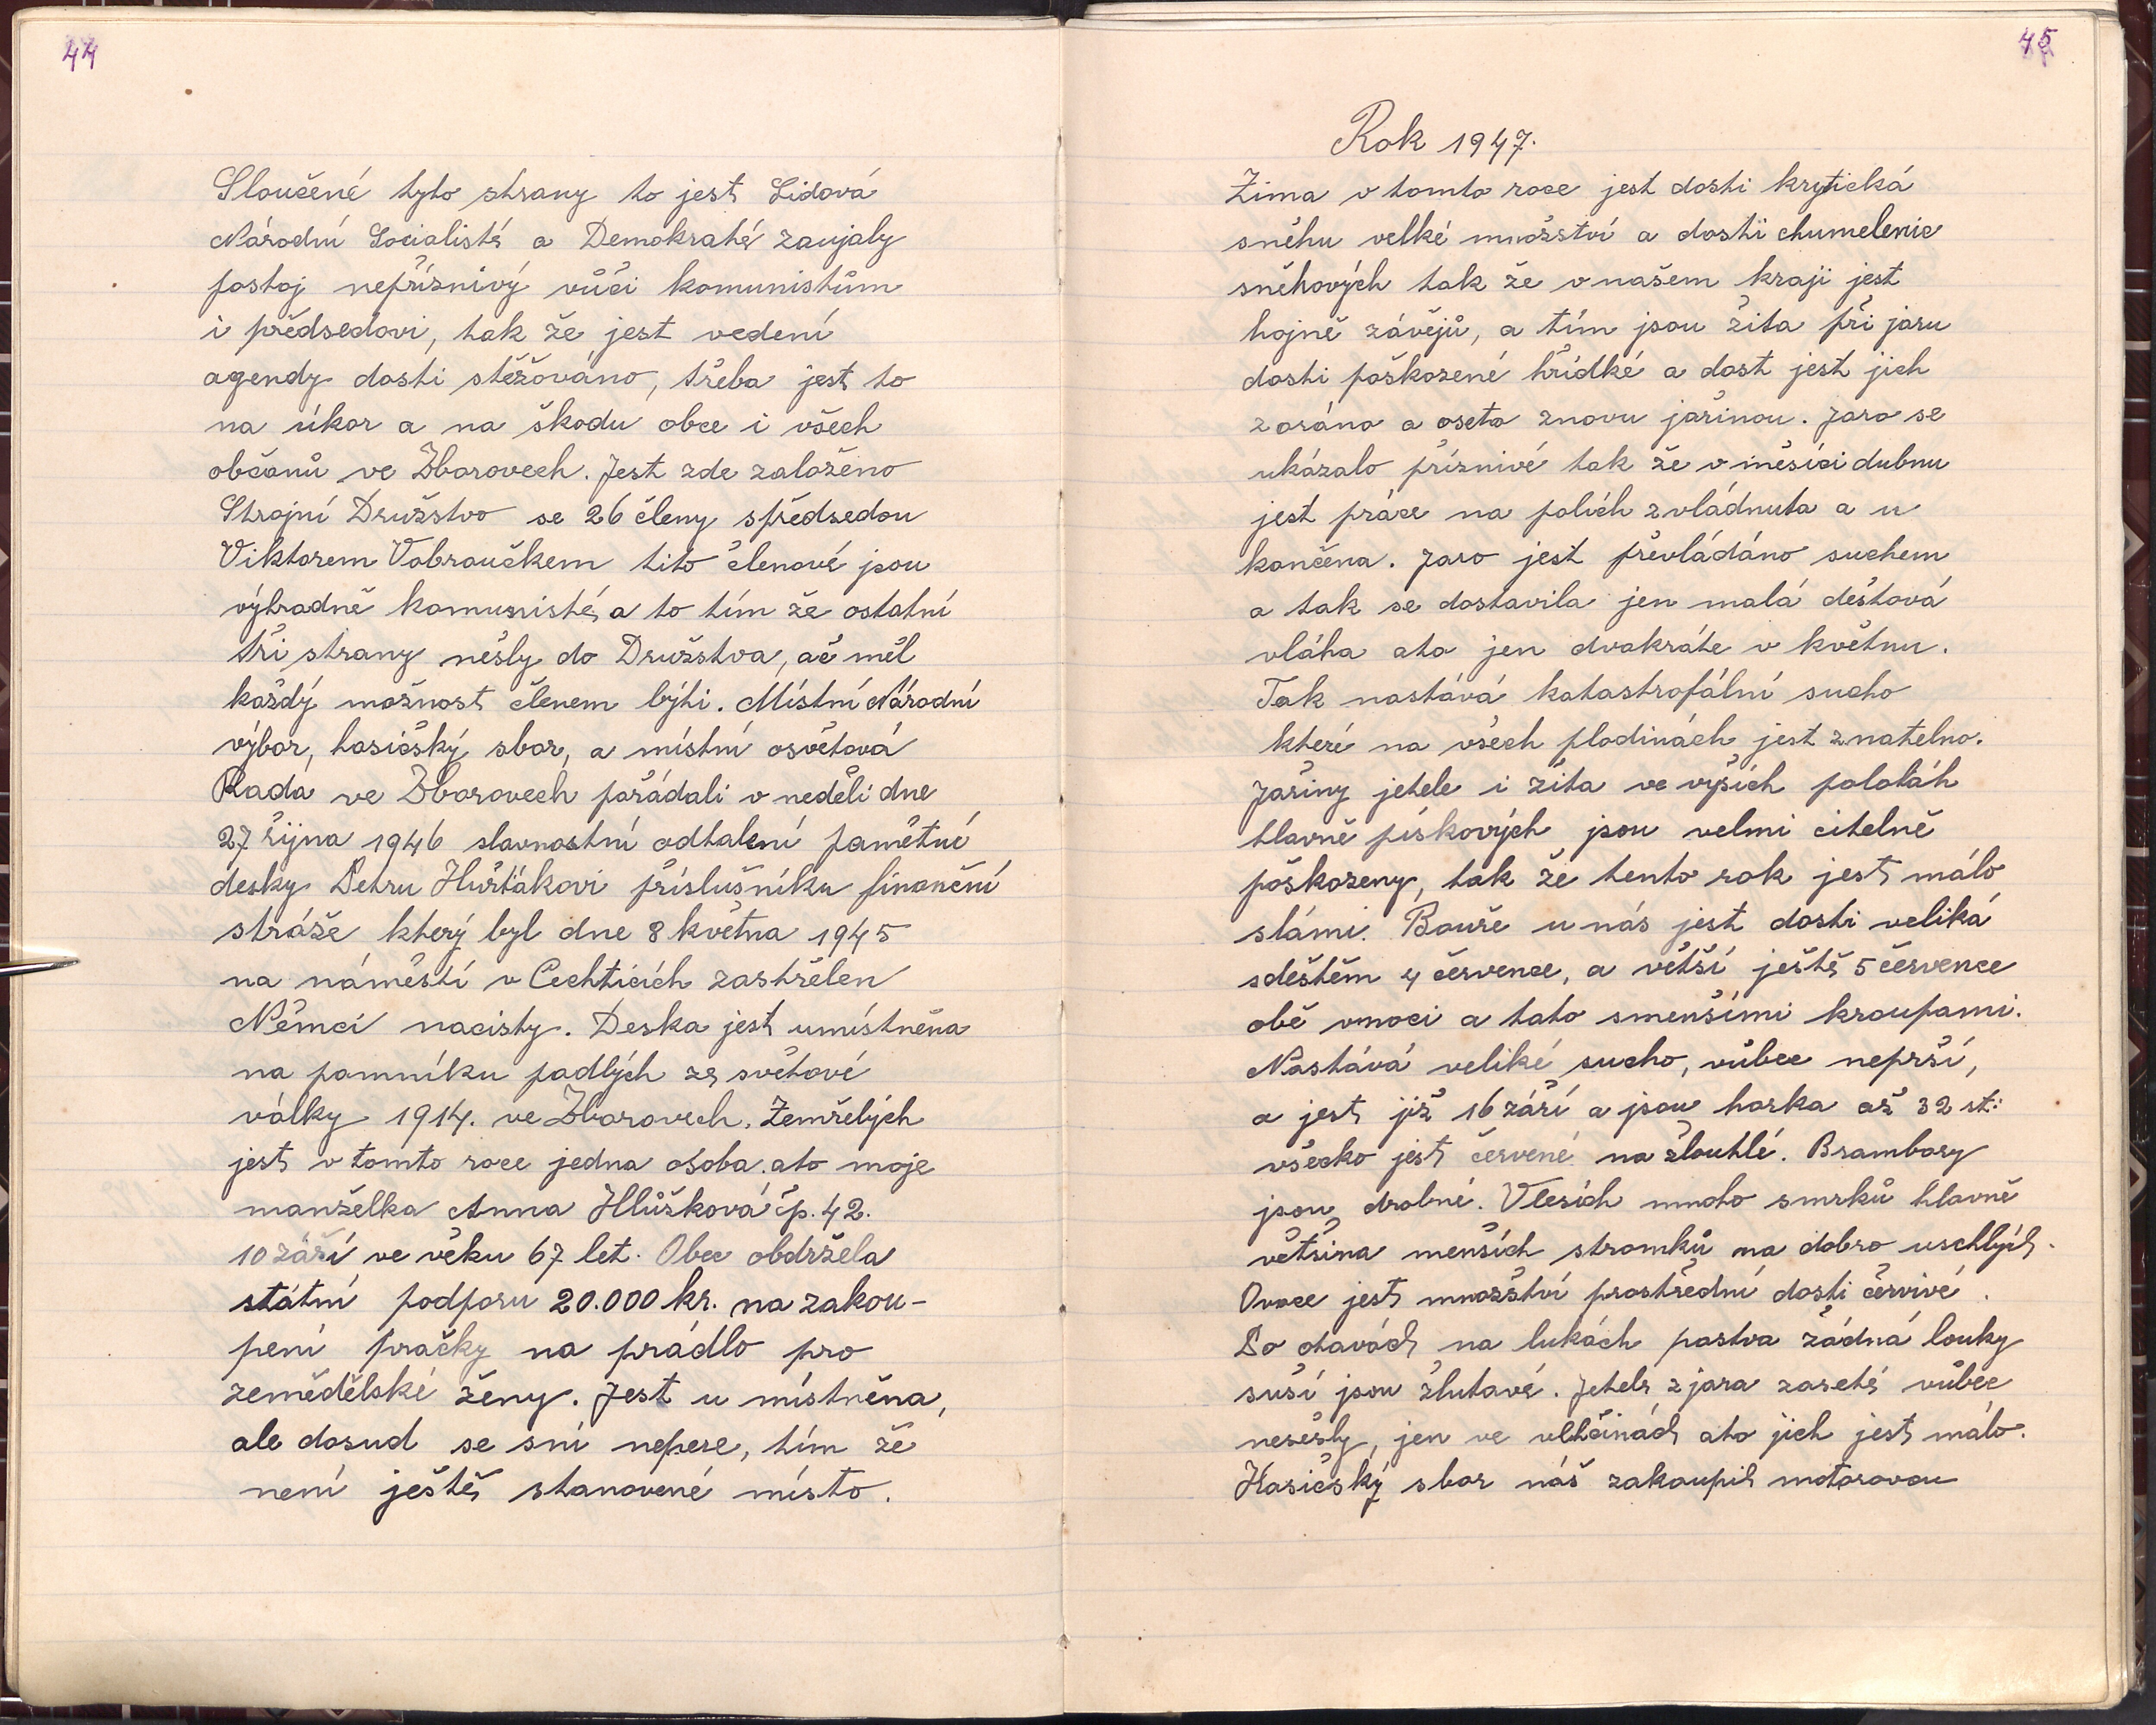 44
Sloučené tyto strany to jest Lidová
Národní Socialisté a Demokraté zaujaly
postoj nepříznivý vůči komunistům
i předsedovi, tak že jest vedení
agendy dosti stěžováno, třeba jest to
na úkor a na škodu obce i všech
občanů ve Zborovech. Jest zde založeno
Strojní Družstvo se 26 členy spředsedou
Viktorem Vobroučkem tito členové jsou
výhradně komunisté, a to tím že ostatní
tři strany nešly do Družstva, ač měl
každý možnost členem býti. Místní Národní
výbor, hasičský sbor, a místní osvětová
Rada ve Zborovech pořádali v neděli dne
27 října 1946 slavnostní odhalení pamětní
desky Petru Hušťákovi příslušníku finanční
stráže který byl dne 8 května 1945
na náměstí v Čechticích zastřelen
Němci nacisty. Deska jest umístněna
na pomníku padlých ze světové
války 1914. ve Zborovech. Zemřelých
jest v tomto roce jedna osoba. ato moje
manželka Anna Hlůšková čp. 42.
10 září ve věku 67 let. Obec obdržela
státní podporu 20.000 kr. na zakou-
pení pračky na prádlo pro
zemědělské ženy. Jest u místněna,
ale dosud se sní nepere, tím že
není ještě stanovené místo.
45
Rok 1947.
Zima v tomto roce jest dosti krytická
sněhu velké množství a dosti chumelenic
sněhových tak že v našem kraji jest
hojně závějů, a tím jsou žita při jaru
dosti poškozené hřídké a dost jest jich
zoráno a oseto znovu jařinou. Jaro se
ukázalo příznivé tak že v měsíci dubnu
jest práce na polích zvládnuta a u
končena. Jaro jest převládáno suchem
a tak se dostavila jen malá dešťová
vláha ato jen dvakráte v květnu.
Tak nastává katastrofální sucho
které na všech plodinách jest znatelno.
Jařiny jetele i žita ve výších polohách
hlavně pískových jsou velmi citelně
poškozeny, tak že tento rok jest málo
slámi. Bouře u nás jest dosti veliká
sdeštěm 4 července, a větší ještě 5 července
obě vnoci a tato smenšími kroupami.
Nastává veliké sucho, vůbec neprší,
a jest již 16 září a jsou horka až 32 st:
všecko jest červené na žloutlé. Brambory
jsou drobné. Vlesích mnoho smrků hlavně
většina menších stromků na dobro uschlých.
Ovoce jest množství prostřední dosti červivé.
Po otavách na lukách pastva žádná louky
suší jsou žlutavé. Jetele z jara zaseté vůbec
nesešly, jen ve vlhčinách ato jich jest málo.
Hasičský sbor náš zakoupil motorovou